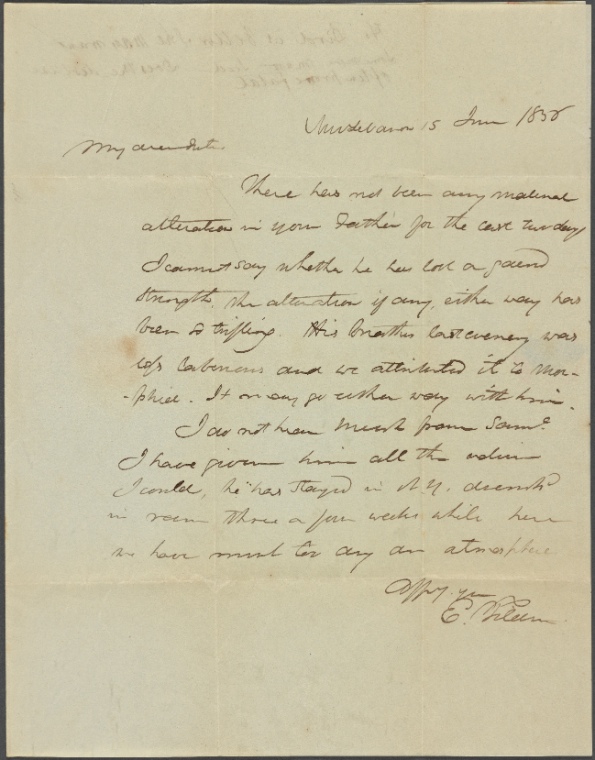 New Lebanon 15 June 1838
My dear
There has not been any material
alteration in your Father for the last two days
I cannot say whether he has lost or gained
strength, the alteration if any, either way has
been so trifling. His breathing last evening was
less laborious and we attributed it to Mor-
-phia. It may go either way with him.
I do not hear much from Saml.
I have given him all the advice
I could, he has stayed in N.Y.
in room three or four weeks while here
we have much too dry an atmosphere
Affly. yr
E. Tilden